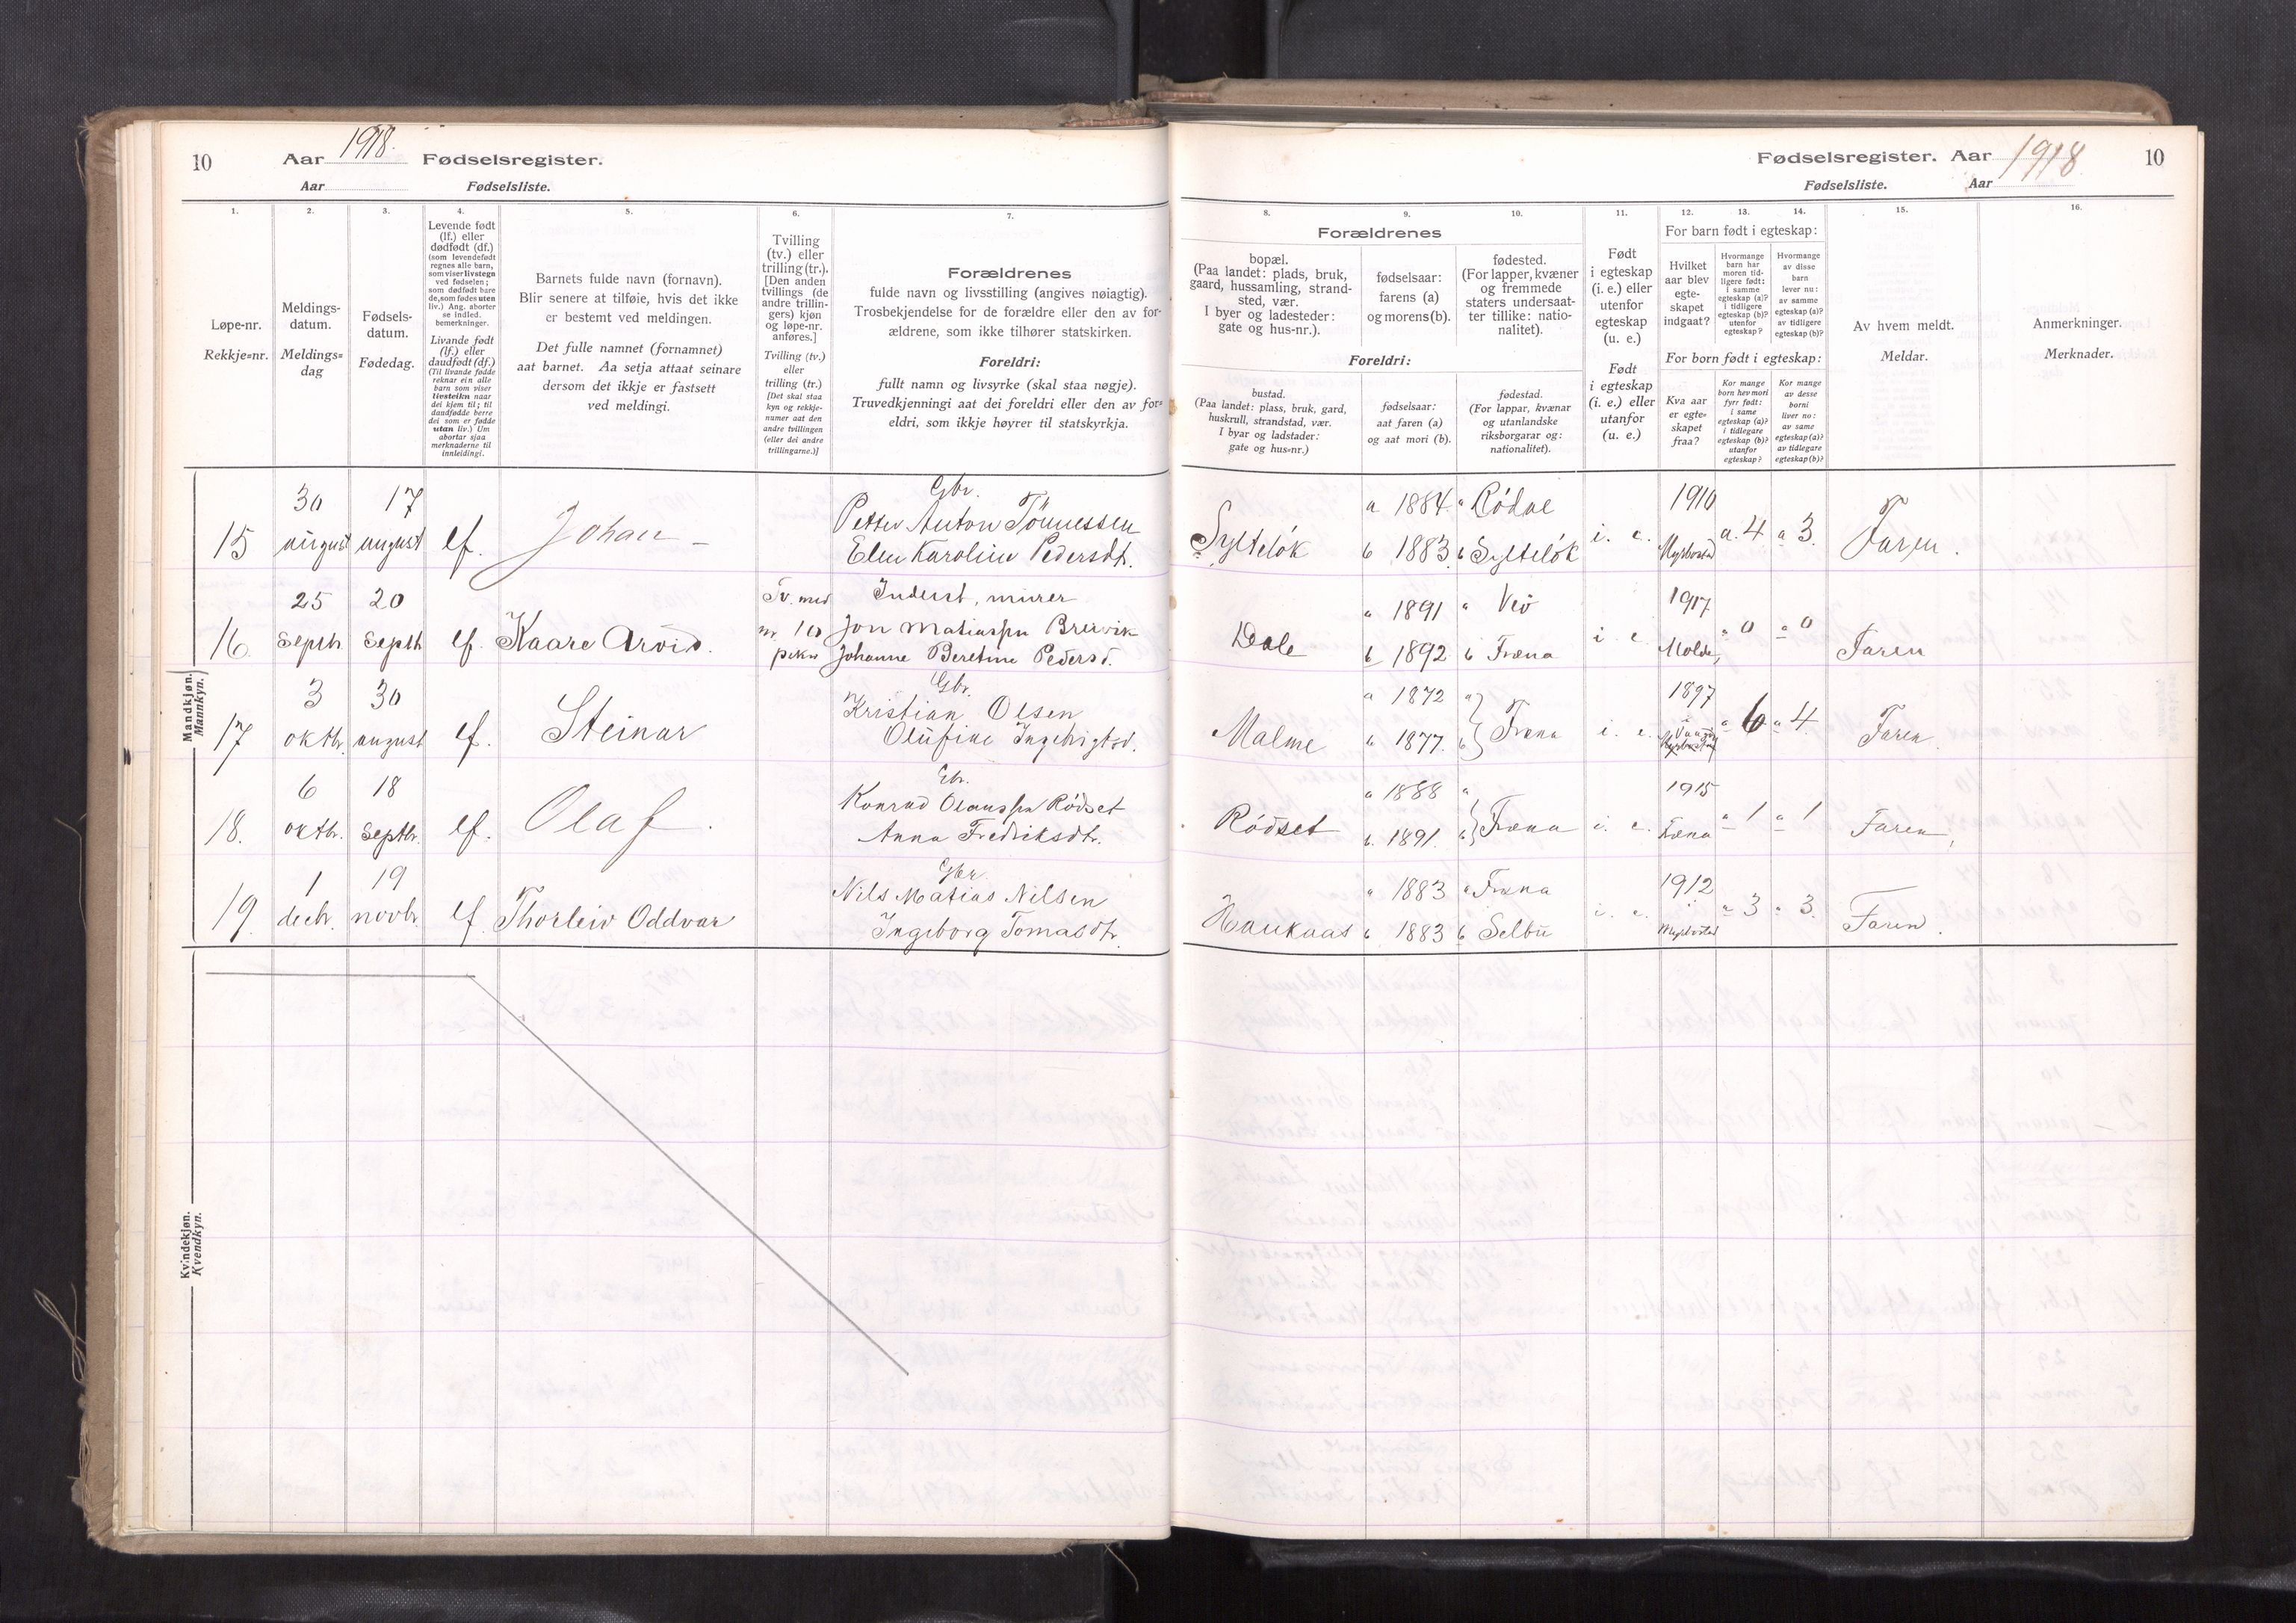 10
Aar 1918. Fødselsregister.
Aar Fødselsliste.
1.
2.
3.
4.
5.
6.
7.
Løpe-nr.
Rekkje=nr.
Meldings-
datum.
Meldings=
dag
Fødsels-
datum.
Fødedag.
Levende født
(lf.) eller
dødfødt (df.)
(som levendefødt
regnes alle barn,
som viser livstegn
ved fødselen;
som dødfødt bare
de, som fødes uten
liv.) Ang. aborter
se indled.
bemerkninger.
Livande født
(lf.) eller
daudfødt (df.)
(Til livande fødde
reknar ein alle
barn som viser
livsteikn naar
dei kjem til; til
daudfødde berre
dei som er fødde
utan liv.) Um
abortar sjaa
merknaderne til
innleidingi.
Barnets fulde navn (fornavn).
Blir senere at tilføie, hvis det ikke
er bestemt ved meldingen.
Det fulle namnet (fornamnet)
aat barnet. Aa setja attaat seinare
dersom det ikkje er fastsett
ved meldingi.
Tvilling
(tv.) eller
trilling (tr.).
[Den anden
tvillings (de
andre trillin-
gers) kjøn
og løpe-nr.
anføres.]
Tvilling (tv.)
eller
trilling (tr.)
[Det skal staa
kyn og rekkje-
numer aat den
andre tvillingen
(eller dei andre
trillingarne.)]
Forældrenes
fulde navn og livsstilling (angives nøiagtig).
Trosbekjendelse for de forældre eller den av for-
ældrene, som ikke tilhører statskirken.
Foreldri:
fullt namn og livsyrke (skal staa nøgje).
Truvedkjenningi aat dei foreldri eller den av for=
eldri, som ikkje høyrer til statskyrkja.
Mandkjøn.
Mannkyn.
15 30 august 17 august lf. Johan
Gbr.
Petter Anton Tönnessen
Elen Karoline Pedersdtr.
16. 25 Septbr. 20 Septb lf. Kaare Arvid. Tv. med
nr. 10
Inderst, murer
Jon Matiassøn Brervik
Johanne Beretine Pedersd.
17 3 oktbr. 30 august lf. Steinar
Gbr.
Kristian Olsen
Olufine Ingebrigtsd.
18. 6 oktbr. 18 Septbr. lf. Olaf.
Gbr.
Konrad Olaussøn Rødset
Anna Fredriksdtr.
19. 1 decbr. 19 novbr. lf. Thorleiv Oddvar
Gbr.
Nils Matias Nilsen
Ingeborg Tomasdtr.
Kvindekjøn.
Kvendkyn.
Fødselsregister. Aar 1918. 10
Fødselsliste. Aar
8.
9.
10.
11.
12.
13.
14.
15.
16.
Forældrenes
bopæl.
(Paa landet: plads, bruk,
gaard, hussamling, strand-
sted, vær.
I byer og ladesteder:
gate og hus-nr.).
fødselsaar:
farens (a)
og morens (b).
fødested.
(For lapper, kvæner
og fremmede
staters undersaat-
ter tillike: natio-
nalitet).
Foreldri:
bustad.
(Paa landet: plass, bruk, gard,
huskrull, strandstad, vær.
I byar og ladstader:
gate og hus=nr.)
fødselsaar:
aat faren (a)
og aat mori (b).
fødestad.
(For lappar, kvænar
og utanlandske
riksborgarar og:
nationalitet).
Født
i egteskap
(i. e.) eller
utenfor
egteskap
(u. e.)
Født
i egteskap
(i. e.) eller
utanfor
(u. e.)
For barn født i egteskap:
Hvilket
aar blev
egte-
skapet
indgaat?
Hvormange
barn har
moren tid-
ligere født:
i samme
egteskap (a)?
i tidligere
egteskap (b)?
utenfor
egteskap?
Hvormange
av disse
barn
lever nu:
av samme
egteskap (a)?
av tidligere
egteskap (b)?
For born født i egteskap:
Kva aar
er egte=
skapet
fraa?
Kor mange
born hev mori
fyrr født:
i same
egteskap (a)?
i tidlegare
egteskap (b)?
utanfor
egteskap?
Kor mange
av desse
borni
liver no:
av same
egteskap (a)?
av tidlegare
egteskap (b)?
Av hvem meldt.
Meldar.
Anmerkninger.
Merknader.
Sylteløk a 1884 b 1883. a Rödve b Sylteløk i. e. 1910 Myrbostad a. 4 a 3. Faren.
Dale a 1891 b 1892 a Veö b Fræna i e 1917 Molde, a 0 a 0 Faren
Malme a 1872 b 1877. a b Fræna i. e. 1897 a 6 a 4 Faren.
Rödset a 1888 b. 1891. a b Fræna i. e. 1915 Fræna a 1 a 1 Faren,
Haukaas a 1883 b 1883 a Fræna b Selbu i. e. 1912 Myrbostad a 3 a 3. Faren.